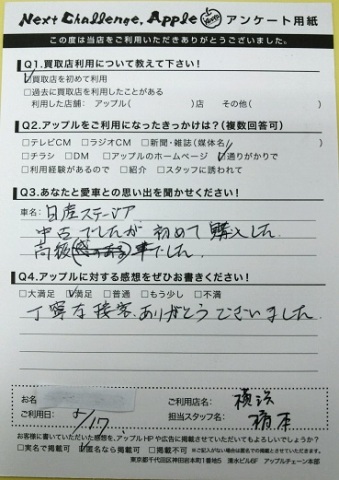 Next Challenge, Apple アンケート用紙
この度は当店をご利用いただきありがとうございました。
Q1.買取店利用について教えて下さい!
☑買取店を初めて利用
□過去に買取を利用したことがある
利用した店舗: アップル( )店 その他( )
Q2.アップルをご利用になったきっかけは?(複数回答可)
□テレビCM □ラジオCM □新聞・雑誌(媒体名 )
□チラシ □DM □アップルのホームページ ☑通りがかりで
□利用経験があるので □紹介 □スタッフに誘われて
Q3.あなたと愛車との思い出を聞かせください!
車名: 日産ステージア
中古でしたが初めて購入した
高級 車でした。
Q4.アップルに対する感想をぜひお書きください!
□大満足 ☑満足 □普通 □もう少し □不満
丁寧な接客、ありがとうございました。
お名
ご利用日: 5/17
ご利用店名: 横浜
担当スタッフ名:
お客様に書いていただいた感想を、アップルHPや広告に掲載させていただいてもよろしいでしょうか?
□実名で掲載可 ☑匿名なら掲載可 □掲載不可 ※ご記入がない場合は匿名での掲載とさせていただきます。
東京都千代田区神田岩本町1番地5 清水ビル6F アップルチェーン本部